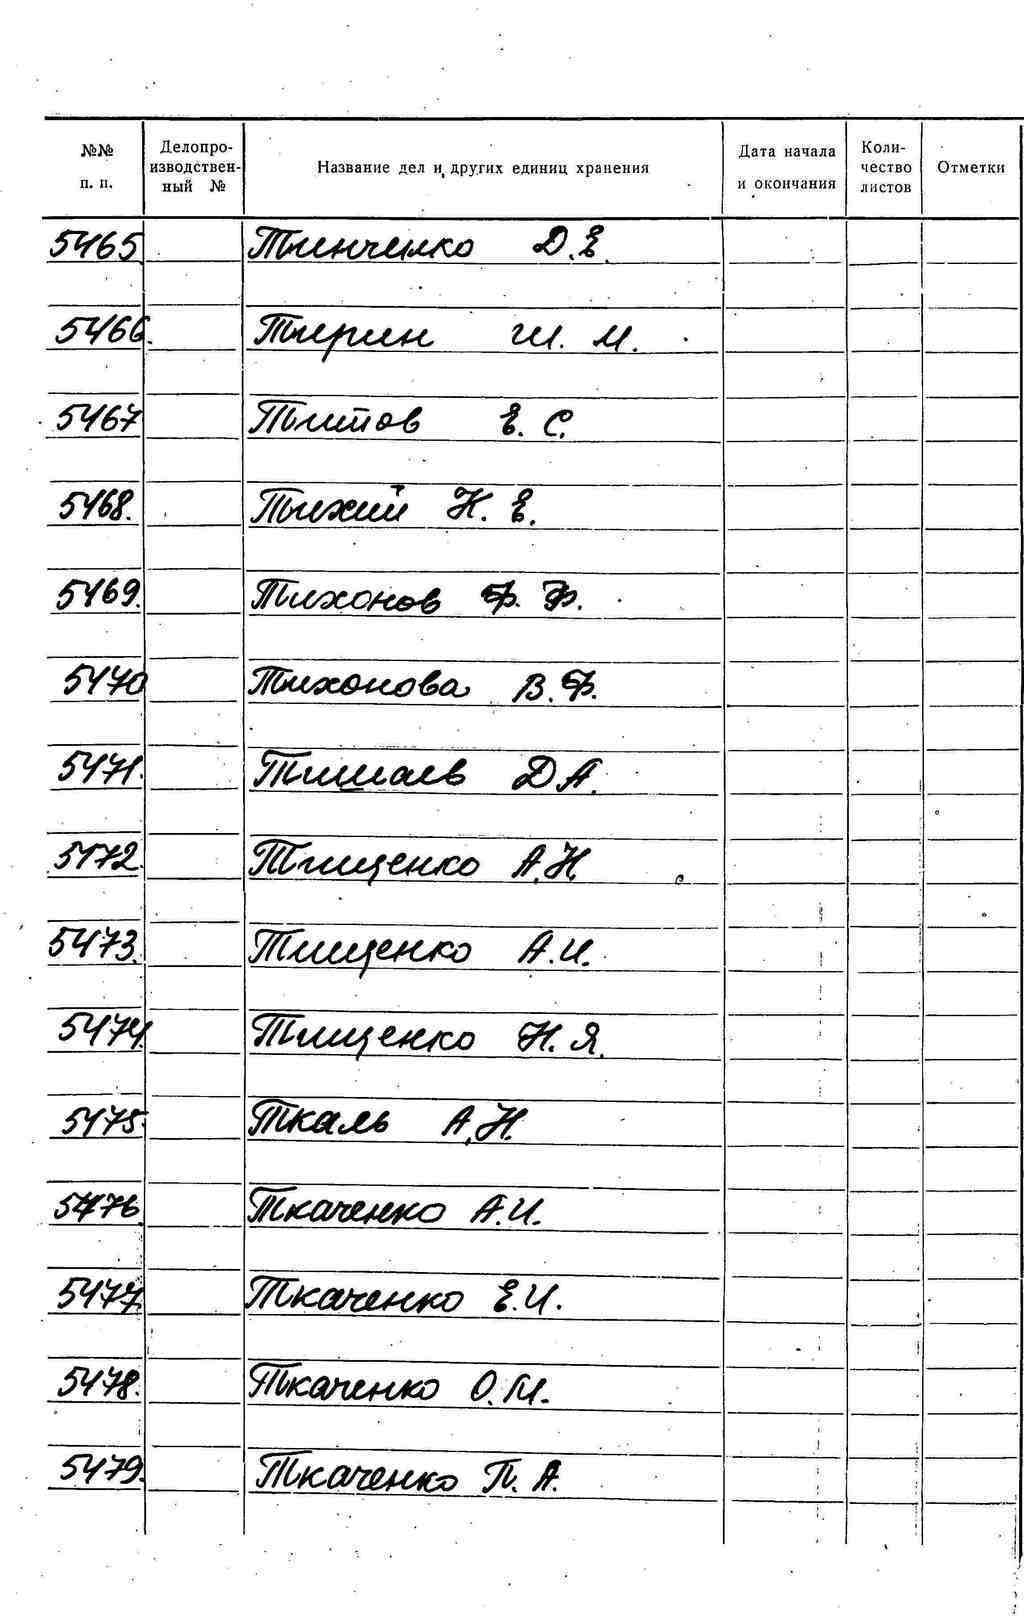 №№ п. п. Делопро-изводствен-ный № Название дел и других единиц хранения Дата начала и окончания Коли-чество листов Отметки
5465. Тинченко Д.Е.
5466. Тирин Ш. М.
5467 Титов Е. С.
5468. Тихий Н. Е.
5469. Тихонов Ф. Ф.
5470 Тихонова В. Ф.
5471. Тишаев Д А.
5472. Тищенко А.Н.
5473. Тищенко А.И.
5474. Тищенко Н.Я.
5475. Ткаль А.Н.
5476. Ткаченко А.И.
5477. Ткаченко Е.И.
5478. Ткаченко О.М.
5479. Ткаченко П. А.